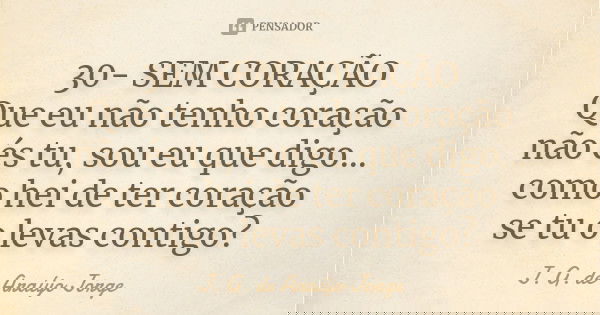 PENSADOR
30- SEM CORAÇÃO
Que eu não tenho coração
não és tu, sou eu que digo...
como hei de ter coração
se tu o levas contigo?
J. G. de
Araújo Jorge